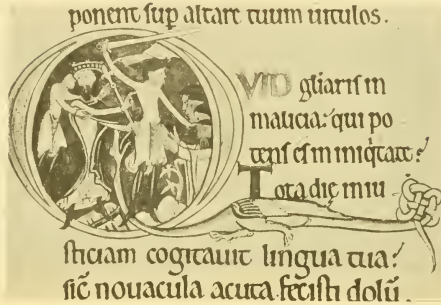 ponent sup altare tuum uitulos.
QUID gliaris in
malicia: qui po
tens es in iniqitate?
Tota die iniu
sticiam cogitauit lingua tua:
sic nouacula acuta fecisti dolū